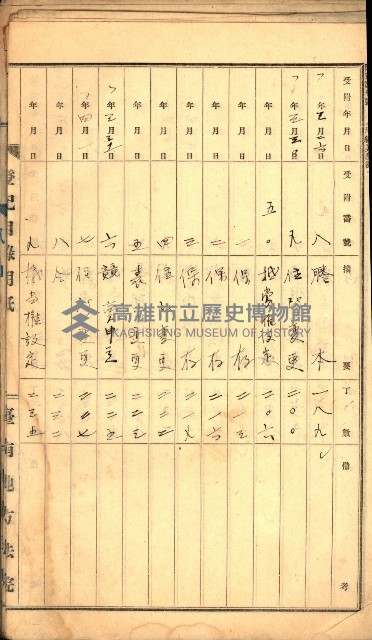 受附年月日 受附番號 摘要 丁數 備考
年三月二六日 八 謄本 一八九
年三月三〇日 九 住所變更 二〇〇
年月日 五〇 抵當權設定 二〇六
年月日 一 保存 二一三
年月日 二 保存 二一六
年月日 三 保存 二一九
年月日 四 住所變更 二二一
年月日 五 表示變更 二二三
年三月三一日 六 競賣申立 二二五
年四月一日 七 變更 二二七
年月日 八 仝 二三二
年月日 九 抵當權設定 二三五
登記目錄用紙
臺南地方法院
高雄市立歷史博物館
KAOHSIUNG MUSEUM OF HISTORY